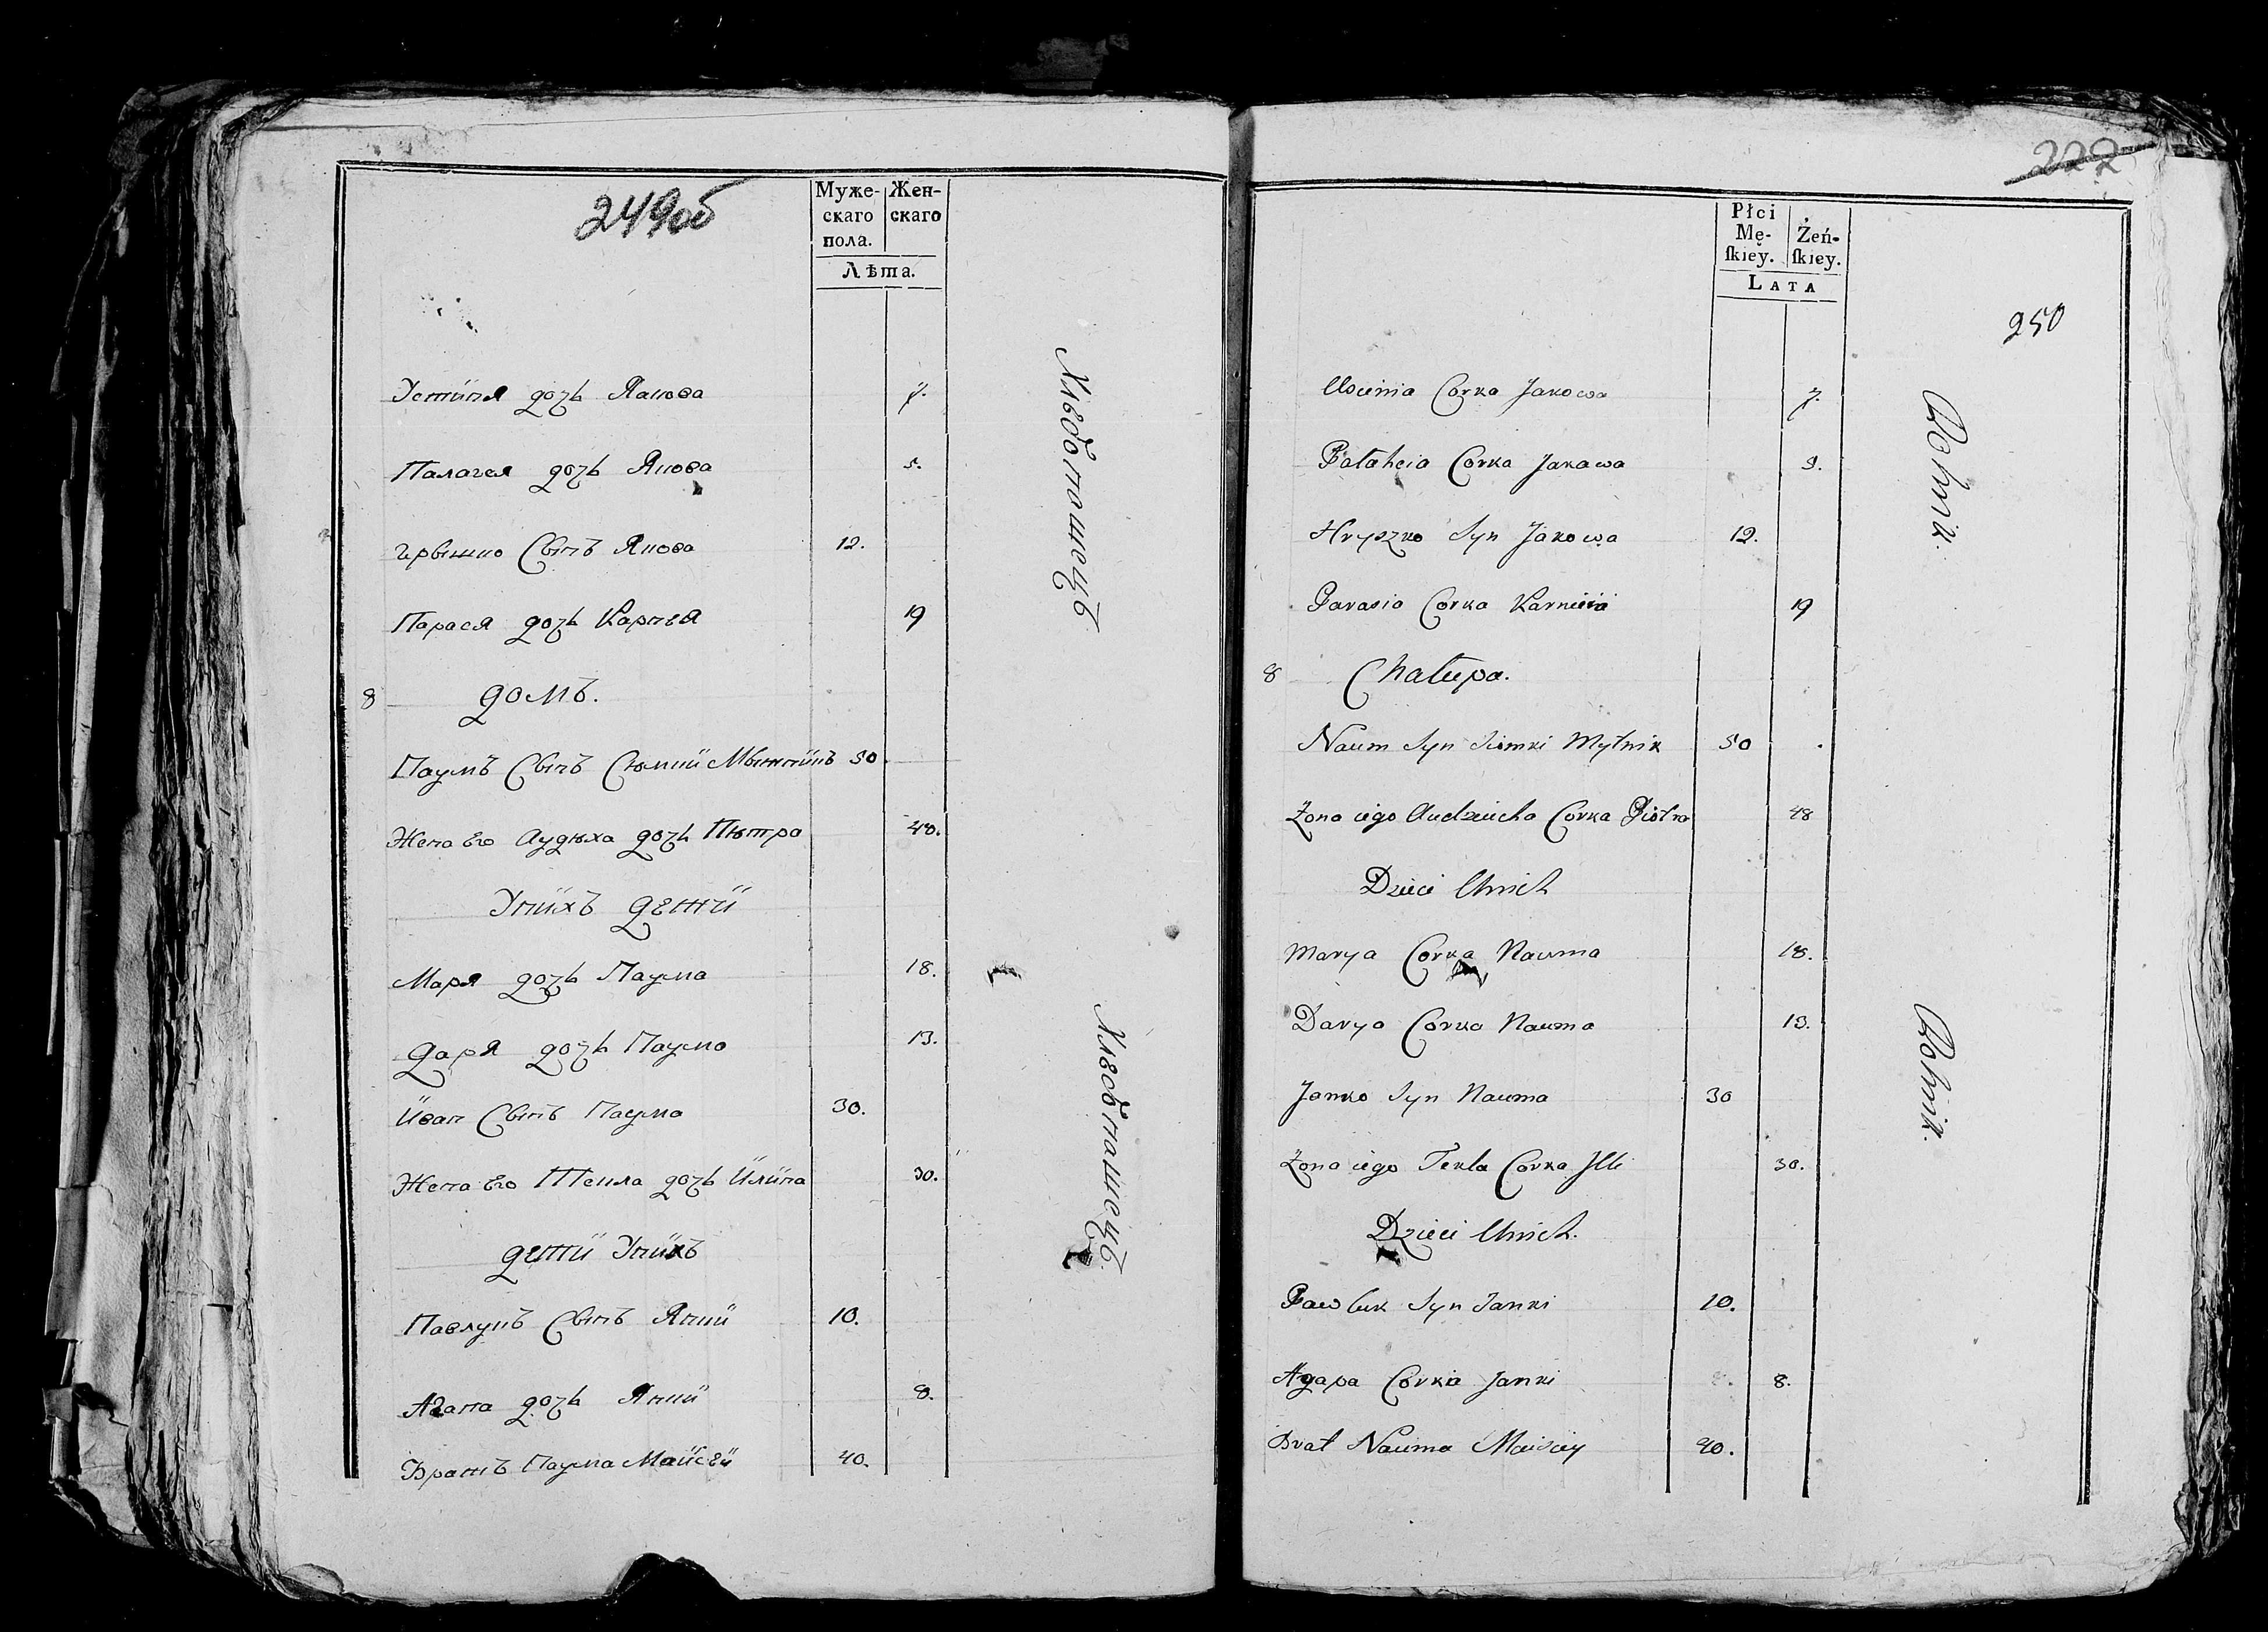 249об
Муже-
скаго
пола.
Жен-
скаго
Лѣта.
Устинꙗ дочь Якова 7.
Палагея дочь Якова 5.
Грышко Сынъ Якова 12.
Парася дочь Карнея 19
Хлебопашецъ.
8 домъ.
Наумъ Сынъ Сюмки Мытникъ 50
Жена Его Аудюха дочь Пютра 48.
У нихъ дети
Маря дочь Наума 18.
Даря дочь Наума 13.
Иван Сынъ Наума 30.
Жена Его Текла дочь Илина 30.
дети У нихъ
Павлукъ Сынъ Янки 10.
Агапа дочь Янки 8.
Братъ Наума Майсей 40.
Хлебопашецъ.
222
Płci
Mę-
skiey.
Żeń-
skiey.
LATA
250
Uscinia Corka Jakowa 7.
Pałaheia Corka Jakowa 5.
Hryszko Syn Jakowa 12.
Parasia Corka Karnieia 19
Rolnik.
8 Chałupa.
Naum Syn Siomki Mytnik 50
Zona iego Audziucha Corka Piotra 48
Dzieci Unich
Marya Corka Nauma 18.
Darya Corka Nauma 13.
Janko Syn Nauma 30
Zona iego Tekla Corka Illi 30.
Dzieci Unich.
Pawluk Syn Janki 10.
Agapa Corka Janki 8.
Brat Nauma Maisiey 40.
Rolnik.